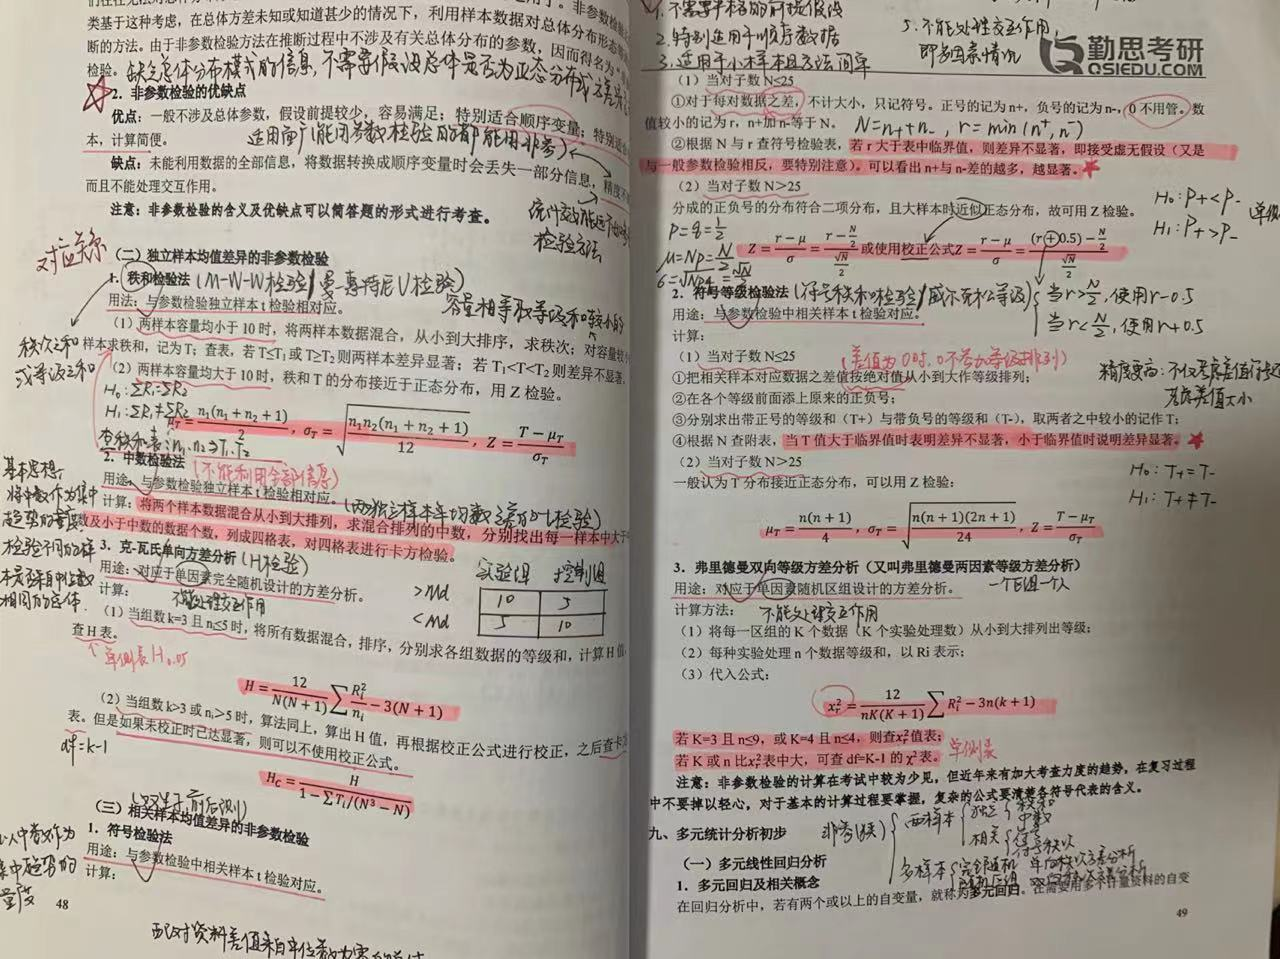 类基于这种考虑，在总体方差未知或知道甚少的情况下，利用样本数据对总体分布形态
断的方法。由于非参数检验方法在推断过程中不涉及有关总体分布的参数，因而得名为
检验。缺乏总体分布模式的信息，不需要假设总体是否为正态分布或方差
2．非参数检验的优缺点
优点：一般不涉及总体参数，假设前提较少，容易满足；特别适合顺序变量；特别适
本，计算简便。
适用面广(能用参数检验的都能用非参)
缺点：未能利用数据的全部信息，将数据转换成顺序变量时会丢失一部分信息，精度
而且不能处理交互作用。
注意：非参数检验的含义及优缺点可以简答题的形式进行考查。
检验方法
对应关系
（二）独立样本均值差异的非参数检验
1．秩和检验法(M-W-W检验/曼-惠特尼U检验)
用法：与参数检验独立样本 t 检验相对应。
（1）两样本容量均小于 10 时，将两样本数据混合，从小到大排序，求秩次；对容量较
秩次之和
或等级之和
样本求秩和，记为 T；查表，若 T≤T₁ 或 T≥T₂ 则两样本差异显著；若 T₁<T<T₂ 则差异不显著。
（2）两样本容量均大于 10 时，秩和 T 的分布接近于正态分布，用 Z 检验。
H₀:ΣR₁=ΣR₂
H₁:ΣR₁≠ΣR₂
μT = n₁(n₁ + n₂ + 1)/2，σT = √(n₁n₂(n₁ + n₂ + 1)/12)，Z = (T − μT)/σT
2．中数检验法(不能利用全部信息)
用途：与参数检验独立样本 t 检验相对应。
计算：将两个样本数据混合从小到大排列，求混合排列的中数，分别找出每一样本中大于
数及小于中数的数据个数，列成四格表，对四格表进行卡方检验。
基本思想：
将中数作为集中
趋势的量度
检验不同的样
本是否来自中位数
相同的总体.
3．克-瓦氏单向方差分析(H检验)
用途：对应于单因素完全随机设计的方差分析。
不能处理交互作用
计算：
实验组 控制组
>Md 10 5
<Md 5 10
（1）当组数 k=3 且 nᵢ≤5 时，将所有数据混合，排序，分别求各组数据的等级和，计算 H 值，
查 H 表。
单侧表H0.05
H = 12/(N(N + 1)) ∑ Rᵢ²/nᵢ − 3(N + 1)
（2）当组数 k>3 或 nᵢ>5 时，算法同上，算出 H 值，再根据校正公式进行校正，之后查卡
表。但是如果未校正时已达显著，则可以不使用校正公式。
df=k-1
Hc = H/(1 − ∑Tᵢ/(N³ − N))
（三）相关样本均值差异的非参数检验
1．符号检验法
用途：与参数检验中相关样本 t 检验对应。
计算：
48
2.特别适用于顺序数据
3.适用于小样本且方法简单
5.不能处理交互作用，
即多因素情况
勤思考研
QSIEDU.COM
（1）当对子数 N≤25
①对于每对数据之差，不计大小，只记符号。正号的记为 n+，负号的记为 n-，0 不用管。数
值较小的记为 r，n+加 n-等于 N。 N=n₊+n₋，r=min(n⁺,n⁻)
②根据 N 与 r 查符号检验表，若 r 大于表中临界值，则差异不显著，即接受虚无假设（又是
与一般参数检验相反，要特别注意）。可以看出 n+与 n-差的越多，越显著。
（2）当对子数 N＞25
H₀:P+<P-
H₁:P+>P-
分成的正负号的分布符合二项分布，且大样本时近似正态分布，故可用 Z 检验。
p=q=1/2
Z = (r − μ)/σ = (r − N/2)/(√N/2) 或使用校正公式 Z = (r − μ)/σ = ((r ± 0.5) − N/2)/(√N/2)
2．符号等级检验法(符号秩和检验/威尔克松等级)
当r>N/2,使用r-0.5
当r<N/2,使用r+0.5
用途：与参数检验中相关样本 t 检验对应。
计算：
（1）当对子数 N≤25 (差值为0时,0不参加等级排列)
①把相关样本对应数据之差值按绝对值从小到大作等级排列；
②在各个等级前面添上原来的正负号；
③分别求出带正号的等级和（T+）与带负号的等级和（T-），取两者之中较小的记作 T；
④根据 N 查附表，当 T 值大于临界值时表明差异不显著，小于临界值时说明差异显著。
（2）当对子数 N＞25
H₀:T₊=T₋
H₁:T₊≠T₋
一般认为 T 分布接近正态分布，可以用 Z 检验：
μT = n(n + 1)/4，σT = √(n(n + 1)(2n + 1)/24)，Z = (T − μT)/σT
3．弗里德曼双向等级方差分析（又叫弗里德曼两因素等级方差分析）
用途：对应于单因素随机区组设计的方差分析。 一个区组一个人
不能处理交互作用
计算方法：
（1）将每一区组的 K 个数据（K 个实验处理数）从小到大排列出等级；
（2）每种实验处理 n 个数据等级和，以 Ri 表示；
（3）代入公式：
χr² = 12/(nK(K + 1)) ∑ Rᵢ² − 3n(k + 1)
若 K=3 且 n≤9，或 K=4 且 n≤4，则查χr²值表；
若 K 或 n 比χr²表中大，可查 df=K-1 的 χ²表。 单侧表
注意：非参数检验的计算在考试中较为少见，但近年来有加大考查力度的趋势，在复习过程
中不要掉以轻心，对于基本的计算过程要掌握，复杂的公式要清楚各符号代表的含义。
九、多元统计分析初步
（一）多元线性回归分析
1．多元回归及相关概念
在回归分析中，若有两个或以上的自变量，就称为多元回归。在需要用多个计量资料的自变
49